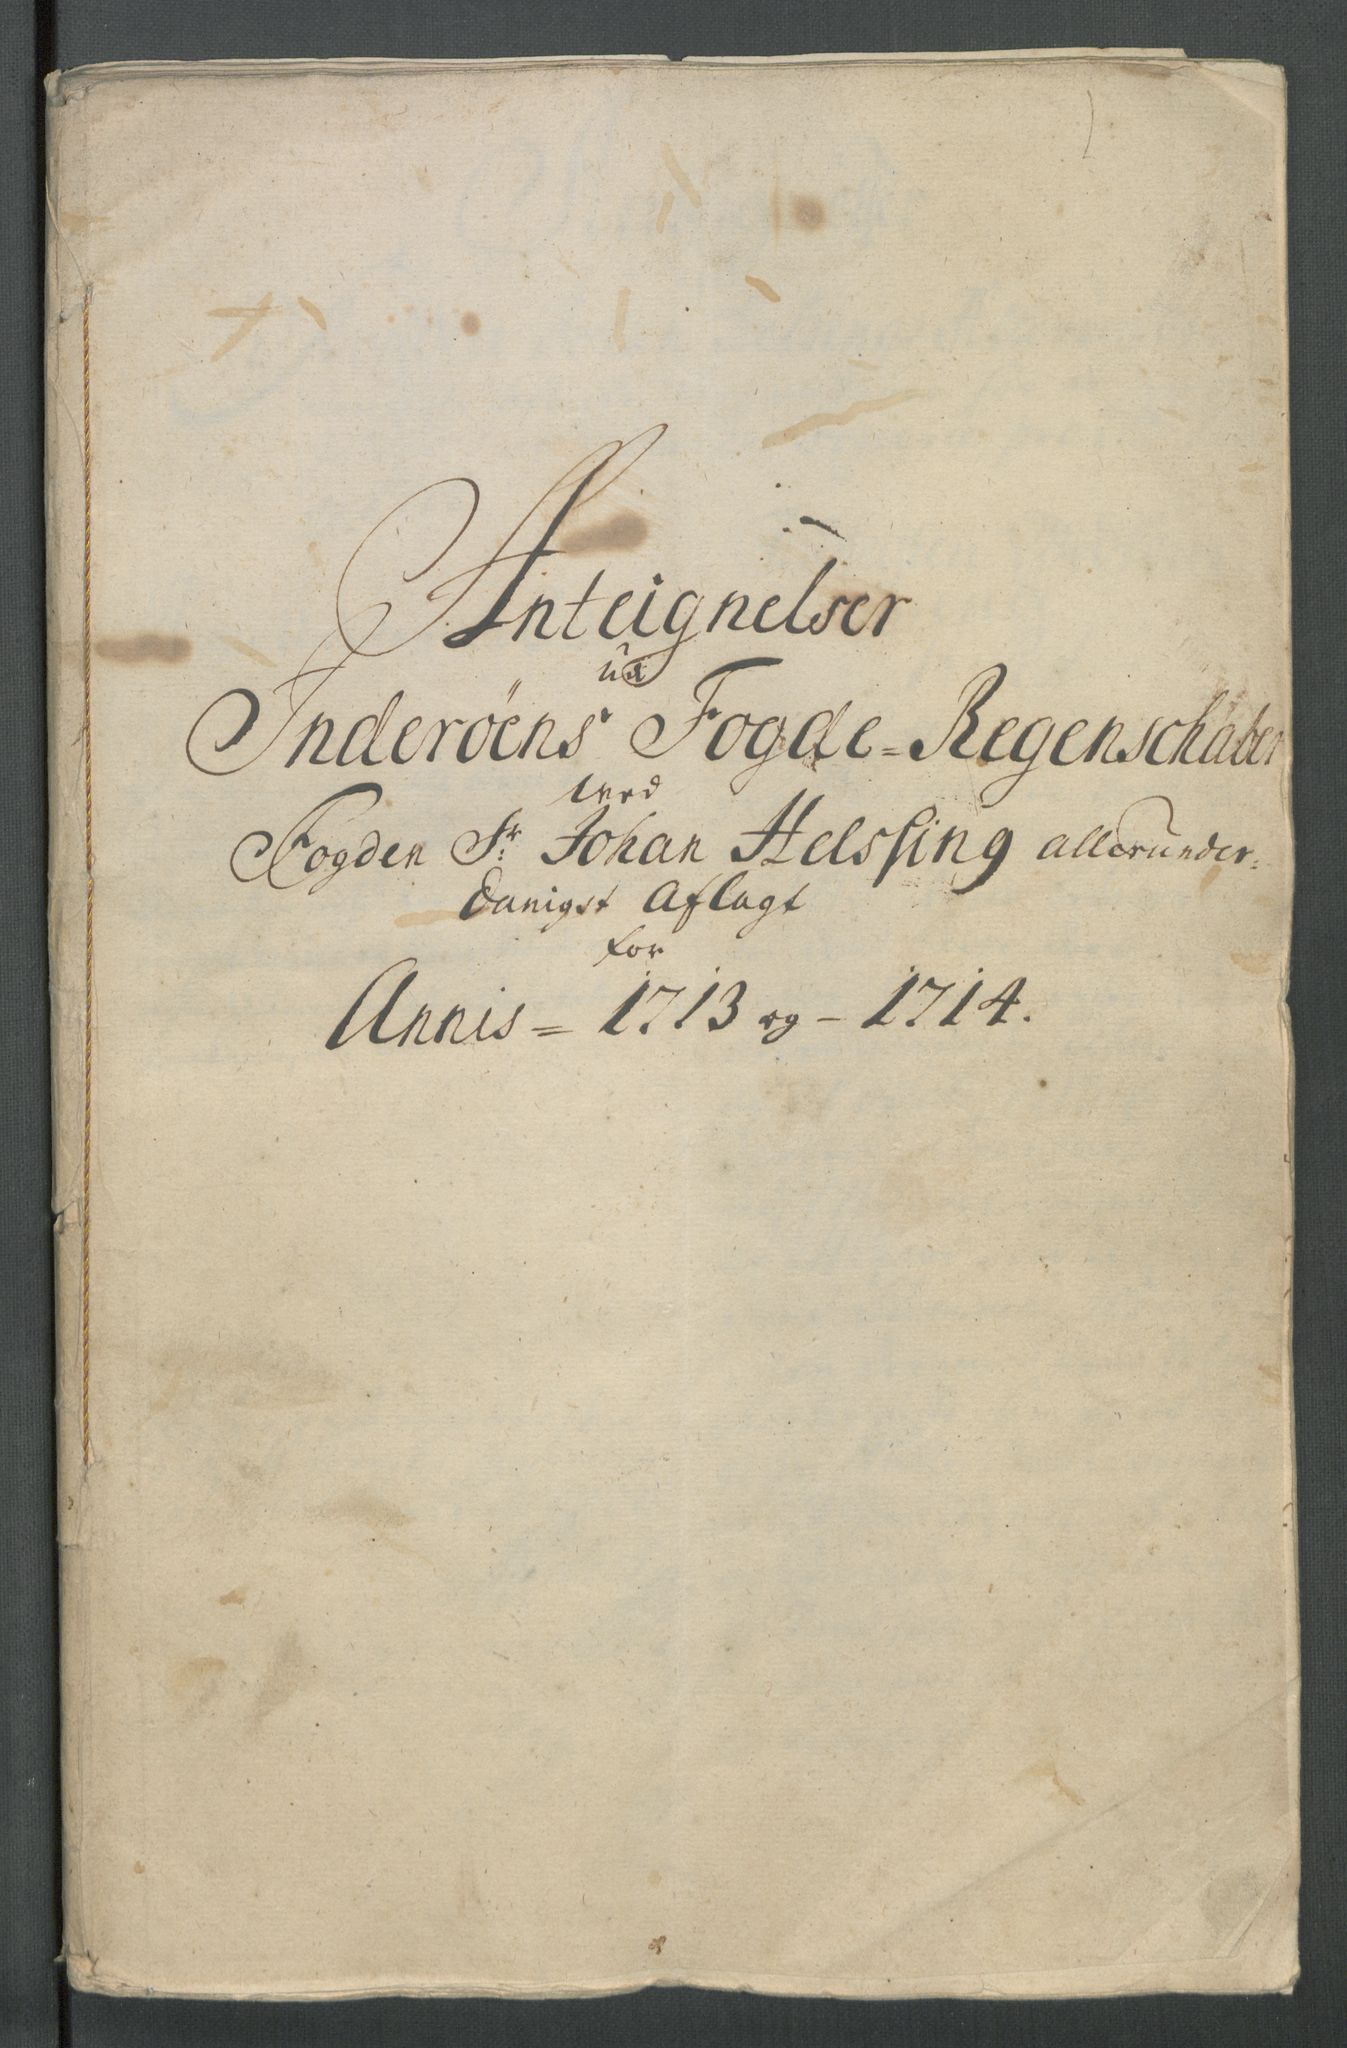 Anteignelser
ud
Inderöens Fogde=Regenschaber
ved
Fogden Sr: Johan Helssing allerunder=
danigst Aflagt
for
Annis = 1713 og - 1714.